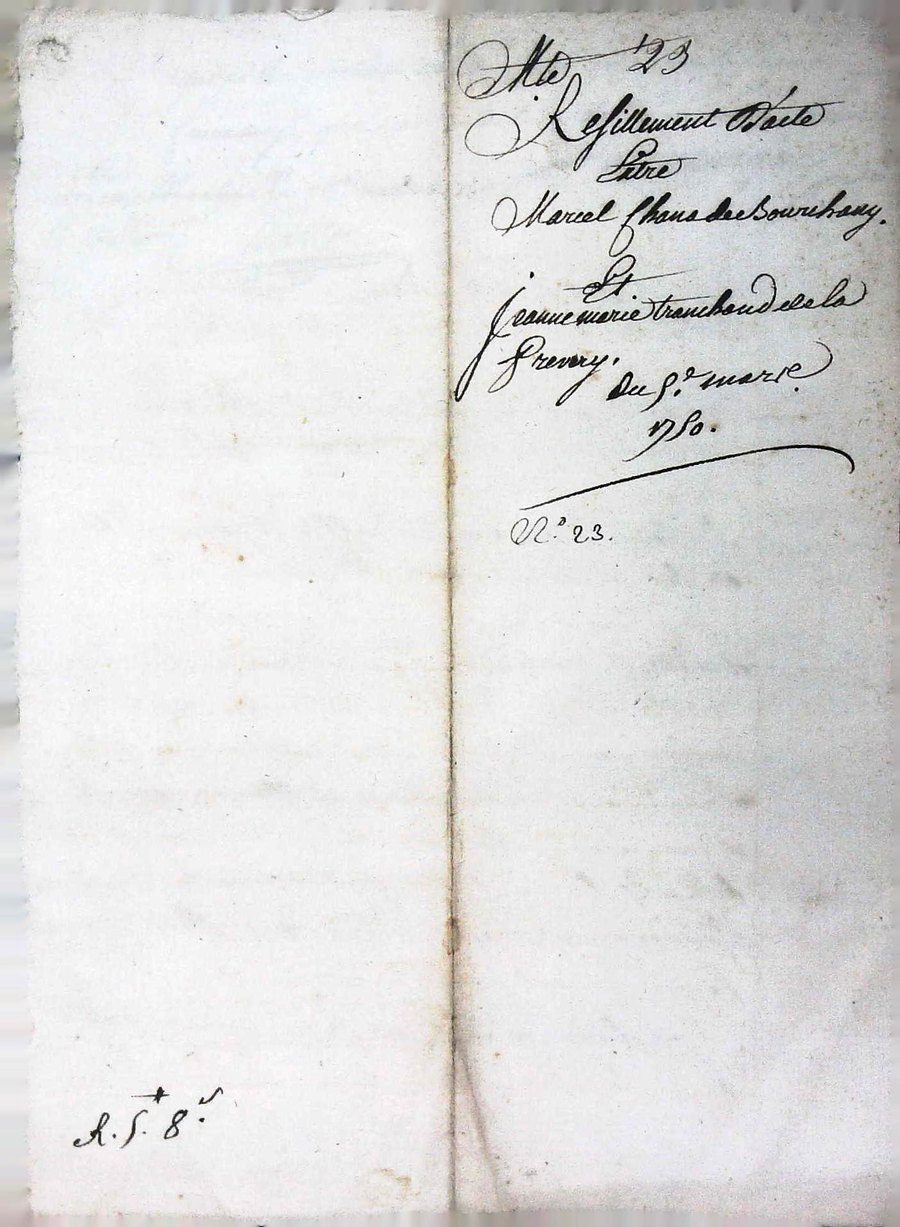 Mte 23
Resillement D'acte
Entre
Marcel Chana de Bourchany.
Et
Jeanne marie tranchand de la
Frevery.
Du 5e. mars.
1750.
N.o 23.
R. 5. 8.s